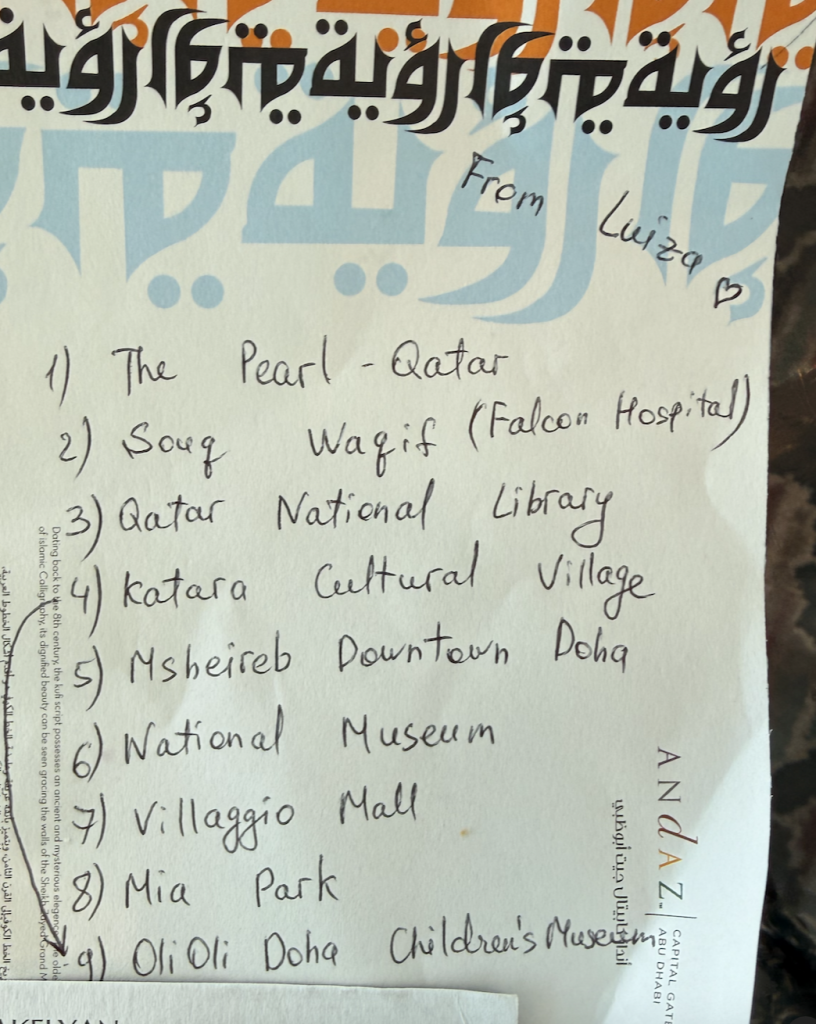 From Luiza
1) The Pearl - Qatar
2) Souq Waqif (Falcon Hospital)
3) Qatar National Library
4) Katara Cultural Village
5) Msheireb Downtown Doha
6) National Museum
7) Villaggio Mall
8) Mia Park
9) OliOli Doha Children's Museum
Dating back to the 8th century, the kufi script possesses an ancient and mysterious elegance
of Islamic Calligraphy, its dignified beauty can be seen gracing the walls of the Sheikh Zayed Grand
ANdAZ™
CAPITAL GATE
ABU DHABI
أنداز كابيتال جيت أبوظبي